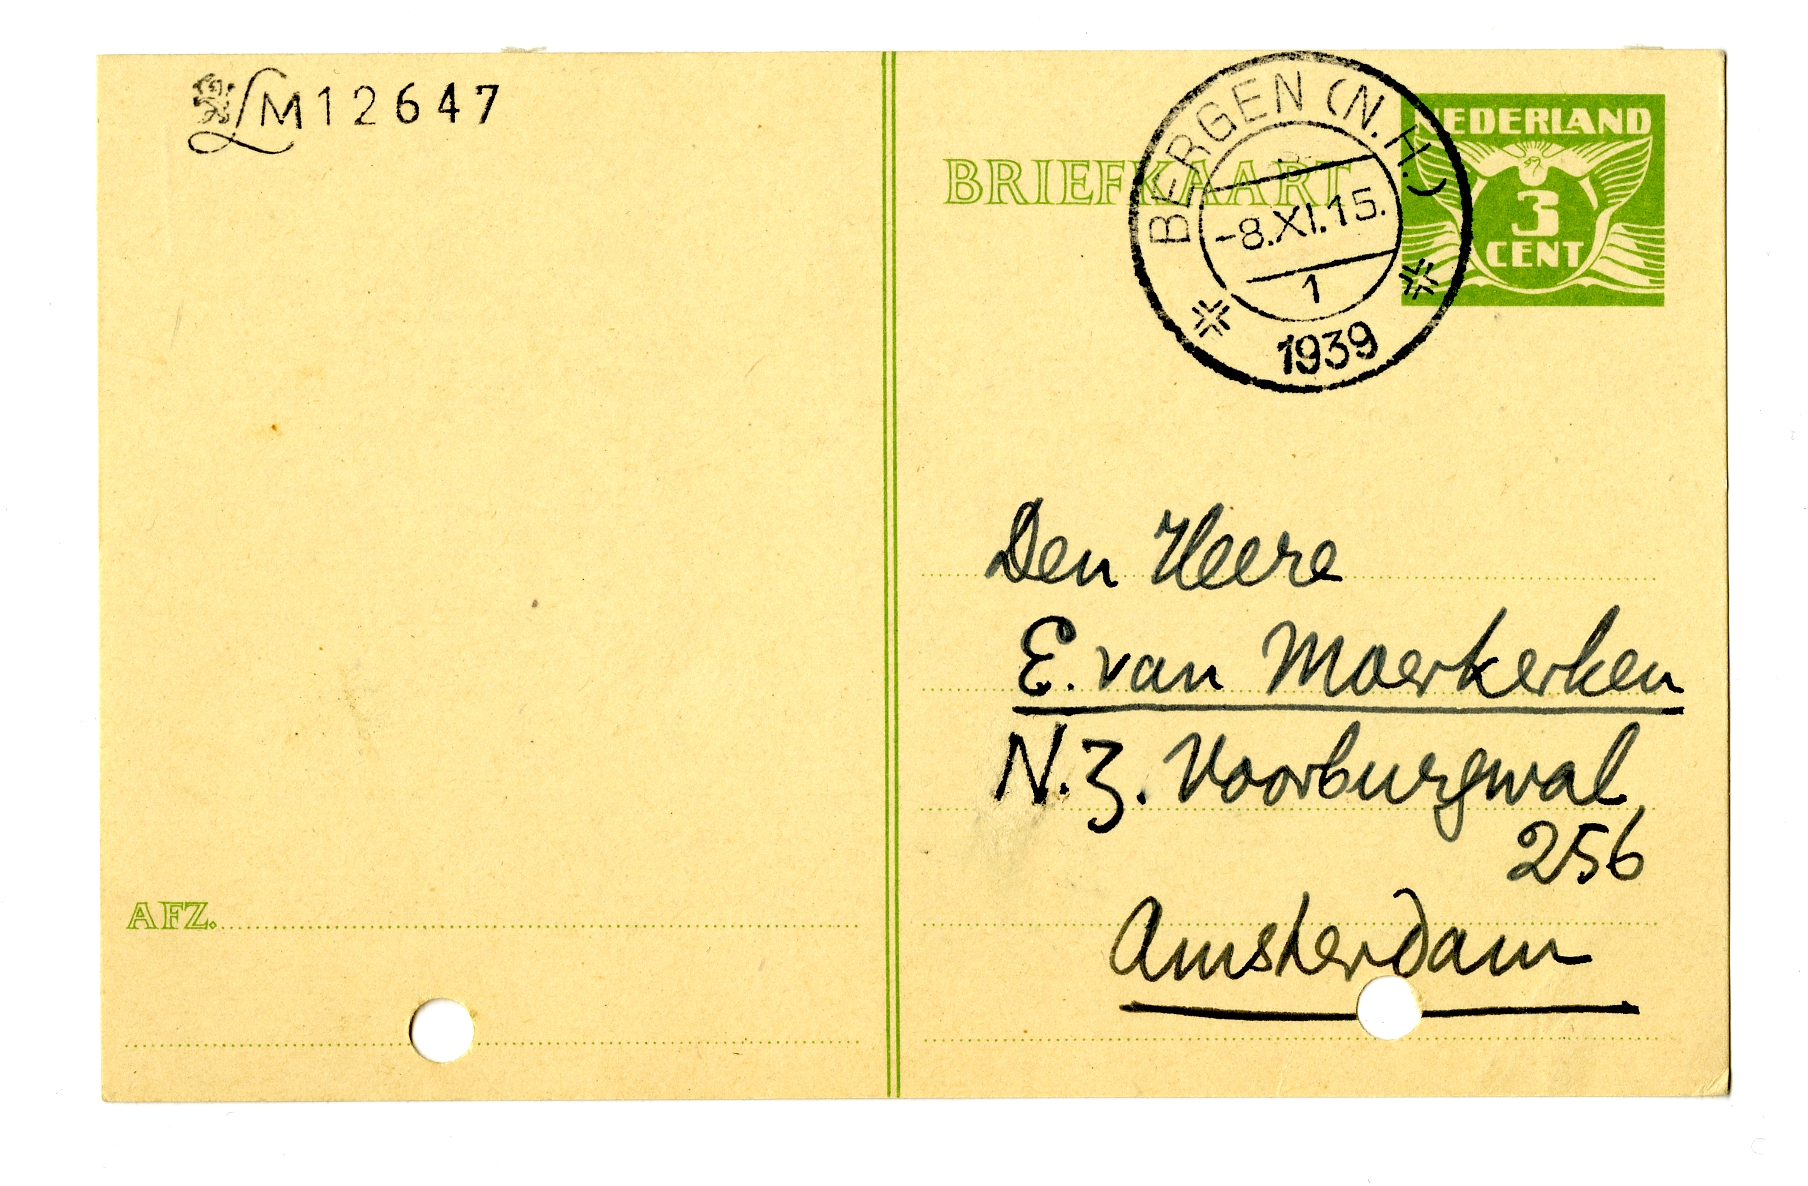 LM12647
BRIEFKAART
BERGEN (N.H.)
-8.XI.15.
1
1939
NEDERLAND
3
CENT
Den Heere
E. van Moerkerken
N.Z. Voorburgwal
256
Amsterdam
AFZ.